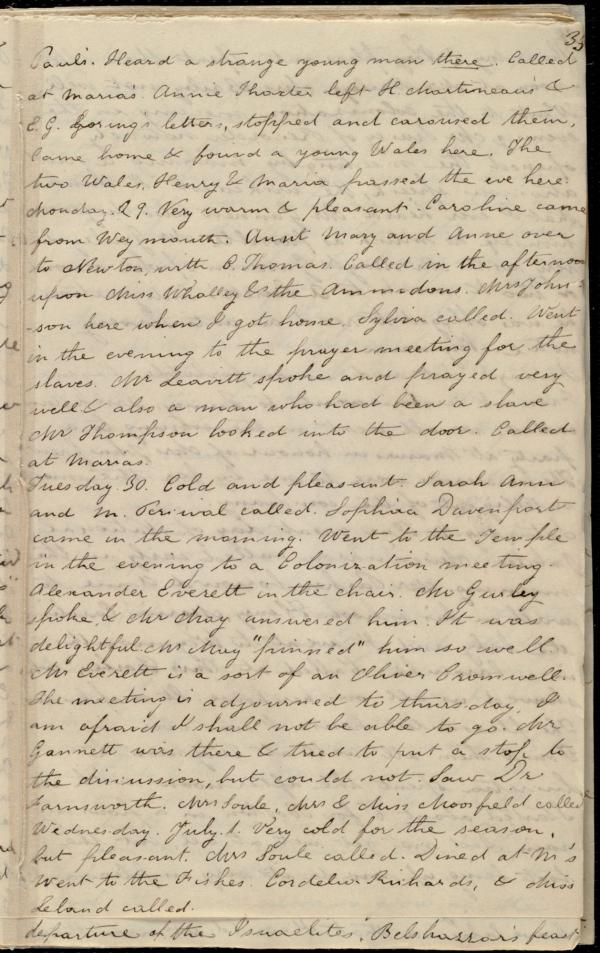 35
Paul's. Heard a strange young man there. Called
at Maria's. Annie Thaxter left H Martineau's &
E. G. Loring's letters, stopped and caroused them.
Came home & found a young Wales here. The
two Wales, Henry & Maria passed the eve here.
Monday. 29. Very warm & pleasant. Caroline came
from Weymouth. Aunt Mary and Anne over
to Newton, with C. Thomas. Called in the afternoon
upon Miss Whalley & the Ammidons. Mrs John-
-son here when I got home. Sylvia called. Went
in the evening to the prayer meeting for the
slaves. Mr Leavitt spoke and prayed very
well & also a man who had been a slave
Mr Thompson looked into the door. Called
at Marias.
Tuesday. 30. Cold and pleasant. Sarah Ann
and M. Perival called. Sophia Davenport
came in the morning. Went to the Temple
in the evening to a Colonization meeting.
Alexander Everett in the chair. Mr Gurley
spoke, & Mr May answered him. It was
delightful. Mr May "pinned" him so well.
Mr Everett is a sort of an Oliver Cromwell.
The meeting is adjourned to thursday. I
am afraid I shall not be able to go. Mr
Gannett was there & tried to put a stop to
the discussion, but could not. Saw Dr
Farnsworth. Mrs Soule, Mrs & Miss Moosfield called
Wednesday. July. 1. Very cold for the season,
but pleasant. Mrs Soule called. Dined at M's
Went to the Fishes. Cordelia Richards, & Miss
Leland called.
departure of the Israelites", Belshazzar's feast